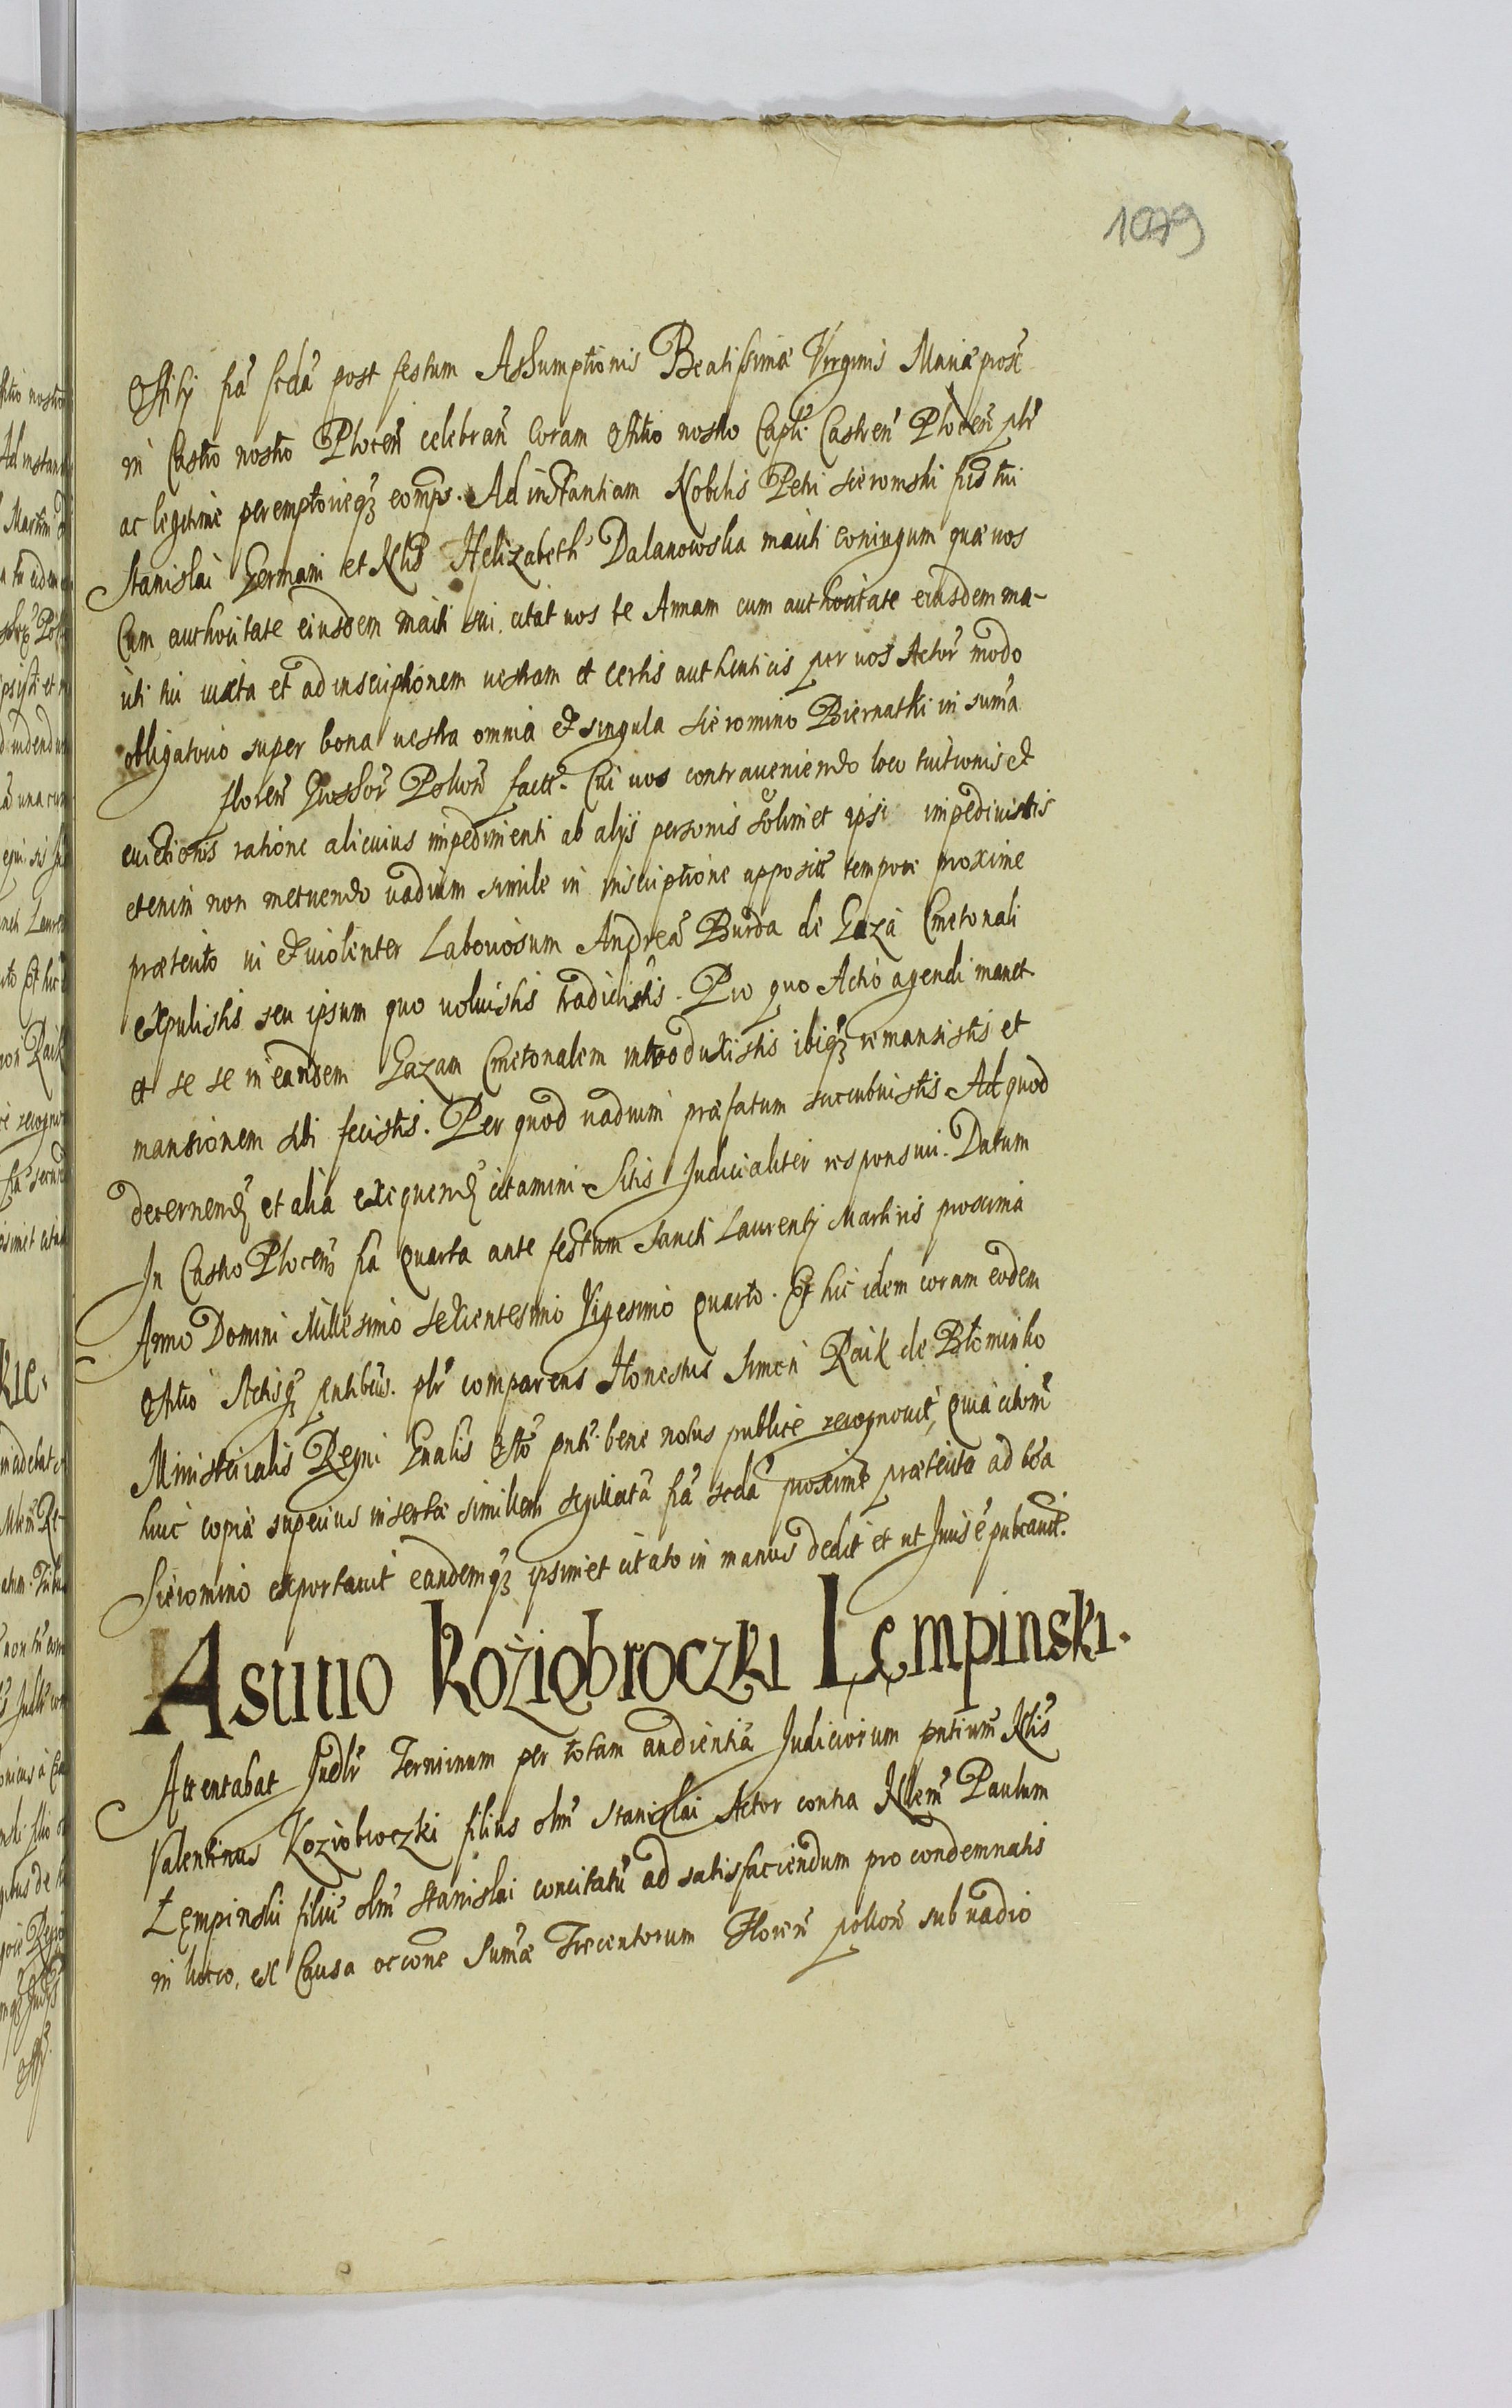 1079
Offity fra scda post festum Assumptionis Beatissimae Virginis Mariae prox
in Castro nostro Plocen celebran Coram Offitio nostro Capli Castren Plocen plr
ac legitime peremptorieqz compS. Ad instantiam Nobilis Petri Sieromski
Stanislai Germani et Nlis Helizabeth Dalanowska mariti coniugum quae uos
Cum authoritate eiusdem mariti sui. citat uos te Annam cum authoritate eiusdem ma-
riti tui iuxta et ad inscriptionem uestram et certis authenticis per uos Actor modo
obligatorio super bona uestra omnia et singula Sieromino Biernathi in suma
floren Grossor Polkon factt. Cui uos contraueniendo loco tuitionis et
euictionis ratione alicuius impedimenti ab alijs personis solimet ipsi impediuistis
etenim non metuendo uadium simile in inscriptione apposit tempore proxime
praeterito ui et uiolenter Laboriosum Andrea Burda de Gaza Cmetonali
expulistis seu ipsum quo uoluistis tradidistis. Pro quo Actio agendi manet
et se se in eandem Gazam Cmetonalem introduxistis ibiqz remansistis et
mansionem sibi fecistis. Per quod uadium praefatum succubuistis Ad quod
decernend et alia exequend citamini Sitis Judicialiter responsuri. Datum
In Castro Plocen fra Quarta ante festum Sancti Laurenty Martiris proxima
Anno Domini Millesimo Sexcentesimo Vigesimo Quarto. Et hic idem coram eodem
Offitio Actisqz pntibus. plr comparens Honestus Simon Raik de Blominko
Ministerialis Regni Gnalis Offo pnti bene notus publice recognouit, Quia citom
huic copiae superius insertae similem sigillata fra scda proxime praeterita ad boa
Sieromino exportauit eandemqz ipsimet citato in manus dedit et ut Juris e pubcauit.
Asuuo Koziębroczki Lempinski.
Attentabat Judlr Terminum per totam audientia Judiciorum pntium Nlis
Valentinus Koziobroczki filius olm Stanislai Actor contra Nlem Paulum
Łempinski filiu olm Stanislai concitatu ad satisfaciendum pro condemnatis
in lucro. ex Causa occone Sumae Trecentorum Floren pollon sub uadio